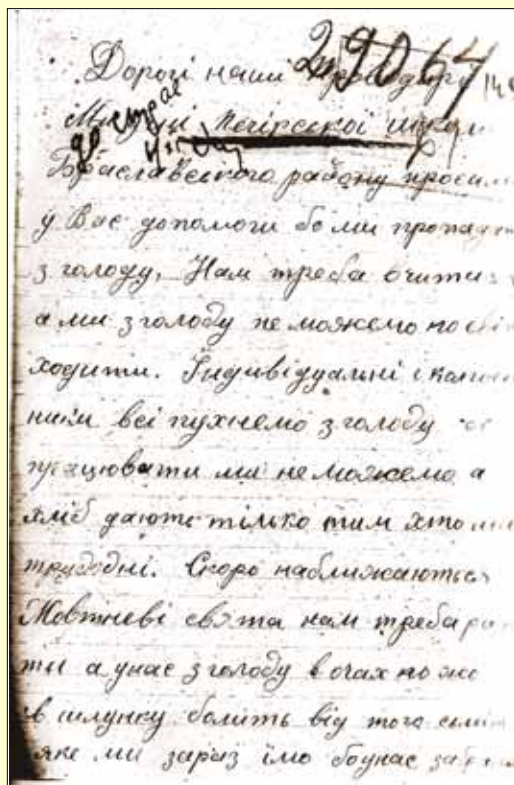 29064
Дорогі наши
Ми учні Печірської школи
Браславського району просимо
у Вас допомоги бо ми пропада
з голоду. Нам треба вчитис
а ми з голоду не можемо по сві
ходити. Індивідуальні і колгос
ники всі пухнемо з голоду
працювати ми не можемо а
хліб дають тілько тим хто має
трудодні. Скоро наближаються
Жовтневі свята нам треба
ти а унас з голоду в очах
в шлунку болить від того
яке ми зараз їмо бо унас